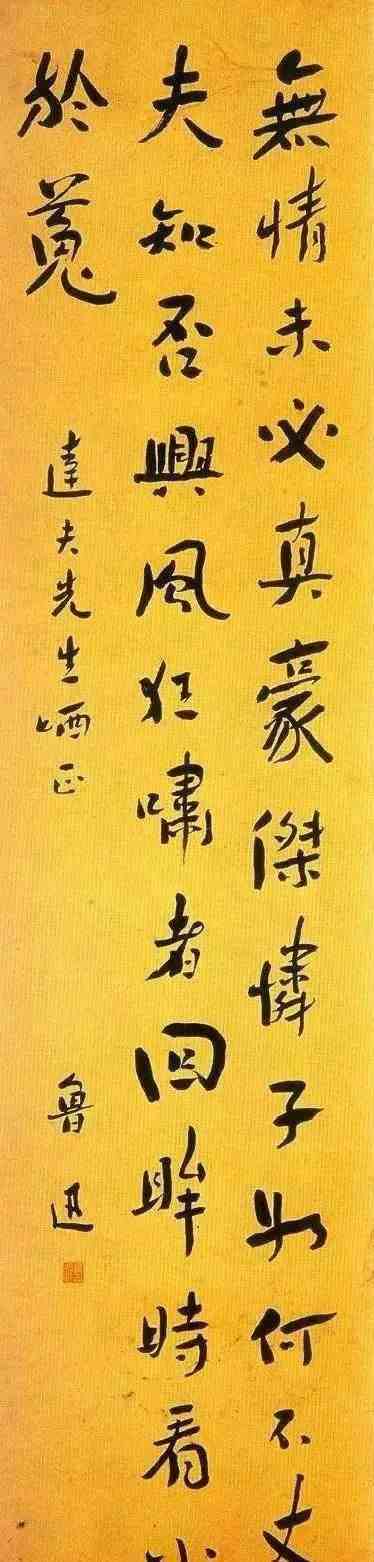 無情未必真豪傑憐子如何不丈
夫知否興風狂嘯者回眸時看
於菟
達夫先生哂正
魯迅